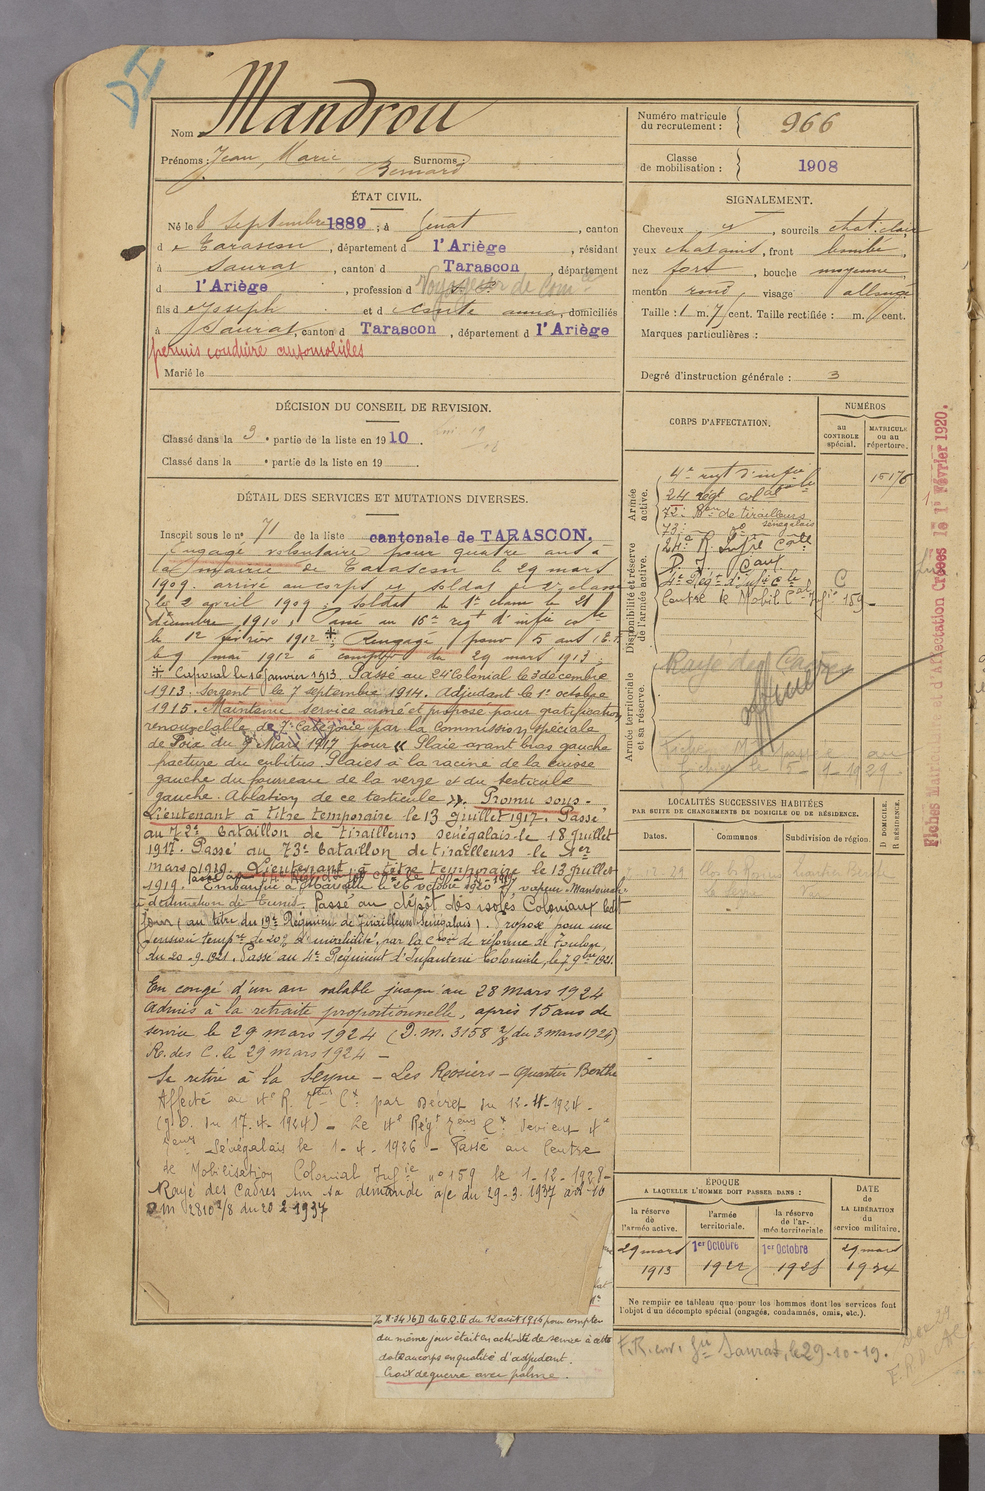 DI
Nom Mandrou
Prénoms : Jean Marie Bernard Surnoms :
Numéro matricule du recrutement : 966
Classe de mobilisation : 1908
ÉTAT CIVIL.
Né le 8 Septembre 1889, à Génat, canton
de Tarascon, département d l'Ariège, résidant
à Saurat, canton d Tarascon, département
d l'Ariège, profession d Voyageur de Com
fils de Joseph et d anna, domiciliés
à Saurat, canton d Tarascon, département d l'Ariège
permis conduire automobiles
Marié le
SIGNALEMENT.
Cheveux, sourcils chat. clair
yeux chatains, front bombé,
nez fort, bouche moyenne,
menton rond, visage allongé
Taille : 1 m. 7 cent. Taille rectifiée : m. cent.
Marques particulières :
Degré d'instruction générale : 3
DÉCISION DU CONSEIL DE REVISION.
Classé dans la 3e partie de la liste en 1910.
Classé dans la e partie de la liste en 19
DÉTAIL DES SERVICES ET MUTATIONS DIVERSES.
Inscrit sous le n° 71 de la liste cantonale de TARASCON.
Engagé volontaire pour quatre ans à
la mairie de Tarascon le 29 mars
1909. arrivé au corps et soldat de 2e classe
le 2 avril 1909. Soldat de 1e classe le 21
décembre 1910. Passé au 16e régt d'infie cole
le 12 février 1912 ‡ Rengagé pour 5 ans
le 9 mai 1912 à compter du 29 mars 1913.
‡ Caporal le 16 janvier 1913. Passé au 24e Colonial le 3 décembre
1913. Sergent le 7 septembre 1914. Adjudant le 1er octobre
1915. Maintenu Service armé et proposé pour gratification
renouvelable de 7e Catégorie par la Commission spéciale
de Foix du 9 Mars 1917 pour « Plaie avant bras gauche
fracture du cubitus. Plaies à la racine de la cuisse
gauche du fourreau de la verge et du testicule
gauche. Ablation de ce testicule ». Promu sous-
Lieutenant à titre temporaire le 13 Juillet 1917. Passé
au 72e bataillon de tirailleurs sénégalais le 18 Juillet
1917. Passé au 73e bataillon de tirailleurs le 1er
mars 1919. Lieutenant à titre temporaire le 13 juillet
1919. Embarqué à Marseille le 26 octobre 1920 vapeur
à destination de Tunis. Passé au dépôt des isolés Coloniaux
jour (au titre du 19e Régiment de Tirailleurs Sénégalais). Proposé pour une
pension tempre de 20% d'invalidité, par la Cion de réforme de Toulon,
du 20-9-1921. Passé au 4e Régiment d'Infanterie Coloniale, le 7 9bre 1921.
En congé d'un an valable jusqu'au 28 mars 1924
admis à la retraite proportionnelle, après 15 ans de
service le 29 mars 1924 (D.M. 3158 2/8 du 3 mars 1924)
R. des C. le 29 mars 1924 -
Se retire à la Seyne - Les Rosiers - quartier Berthe
Affecté au 4e R. Teurs Cx par Décret du 12-4-1924-
(J.O. du 17.4-1924) - Le 4e Régt Teurs Cx devient 4e
Teurs Sénégalais le 1-4-1926 - Passé au Centre
de Mobilisation Colonial Infie n° 159 le 1-12-1928-
Rayé des Cadres sur sa demande a/c du 29-3-1937
D.m 2810 2/8 du 20 2 1937
N° 3416 D du G.Q.G du 12 août 1916 pour compter
du même jour était en activité de service à cette
date au corps en qualité d'adjudant.
Croix de guerre avec palme.
CORPS D'AFFECTATION.
NUMÉROS
au CONTROLE spécial.
MATRICULE ou au répertoire.
Armée active.
4e regt d'infie cole 15176
24 régt colal
72e Bon de tirailleurs sénégalais
73e do
Disponibilité et réserve de l'armée active.
24e R. Infie Cole
4e Régt d'infie cle C
Centre de Mobil. Cal Infie 159
Armée territoriale et sa réserve.
Rayé des Cadres
Fiches Matric. d'Affectation Créées le 1er Février 1920.
LOCALITÉS SUCCESSIVES HABITÉES
PAR SUITE DE CHANGEMENTS DE DOMICILE OU DE RÉSIDENCE.
Dates. Communes. Subdivision de région. D. DOMICILE. R. RÉSIDENCE.
la Seyne Var
ÉPOQUE
A LAQUELLE L'HOMME DOIT PASSER DANS :
la réserve de l'armée active. l'armée territoriale. la réserve de l'armée territoriale
DATE de LA LIBÉRATION du service militaire.
29 mars 1913
1er Octobre 1922
1er Octobre 1928
29 mars 1934
Ne remplir ce tableau que pour les hommes dont les services font
l'objet d'un décompte spécial (engagés, condamnés, omis, etc.).
F.R. env. Gie Saurat, le 29-10-19.